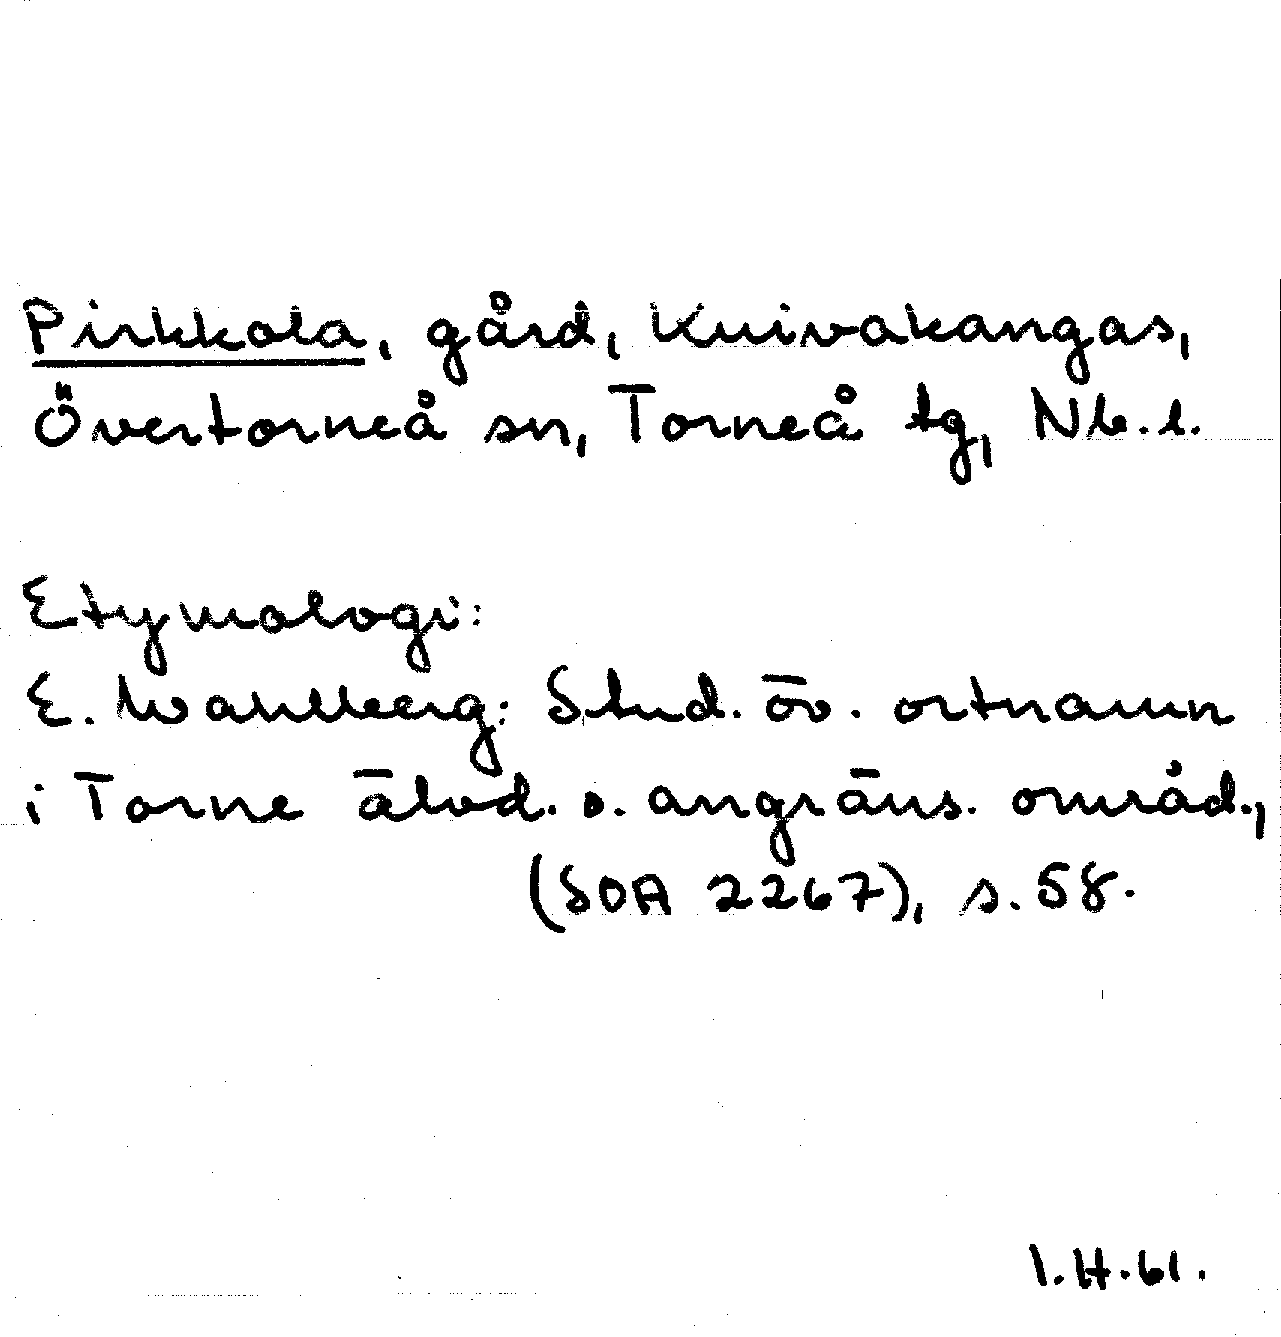 Pirkkola, gård, Kuivakangas,
Övertorneå sn, Torneå tg, Nb. l.
Etymologi:
E. Wahlberg: Stud. öv. ortnamn
i Torne älvd. o. angräns. områd.,
(SOA 2267), s. 58.
I.H.61.